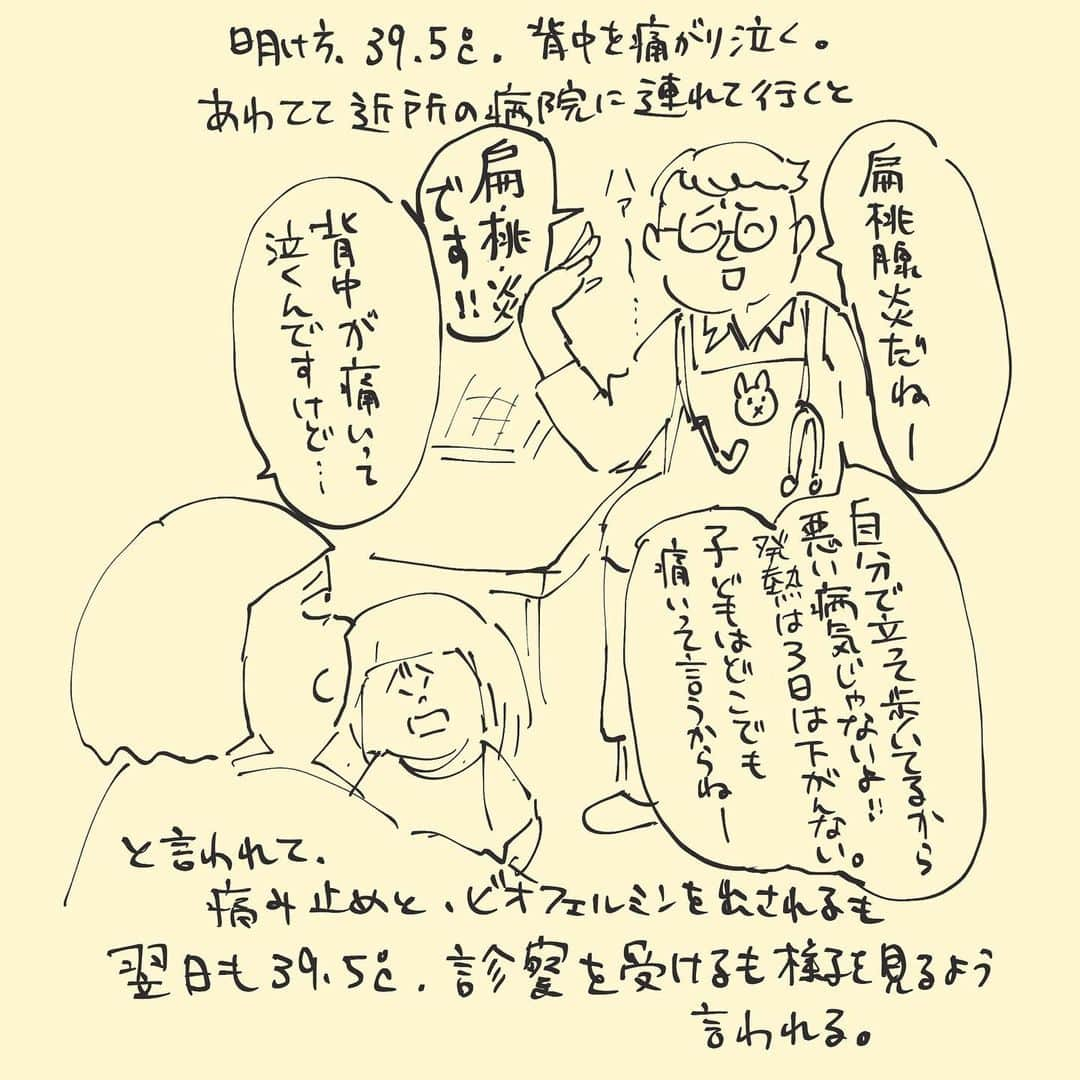 明け方、39.5℃. 背中を痛がり泣く。
あわてて近所の病院に連れて行くと
扁桃腺炎だねー
ハァー…
扁・桃・炎
です!!
背中が痛いって
泣くんですけど…
自分で立って歩いてるから
悪い病気じゃないよ!!
発熱は3日は下がんない。
子どもはどこでも
痛いって言うからねー
と言われて、
痛み止めと、ビオフェルミンを出されるも
翌日も39.5℃. 診察を受けるも様子を見るよう
言われる。